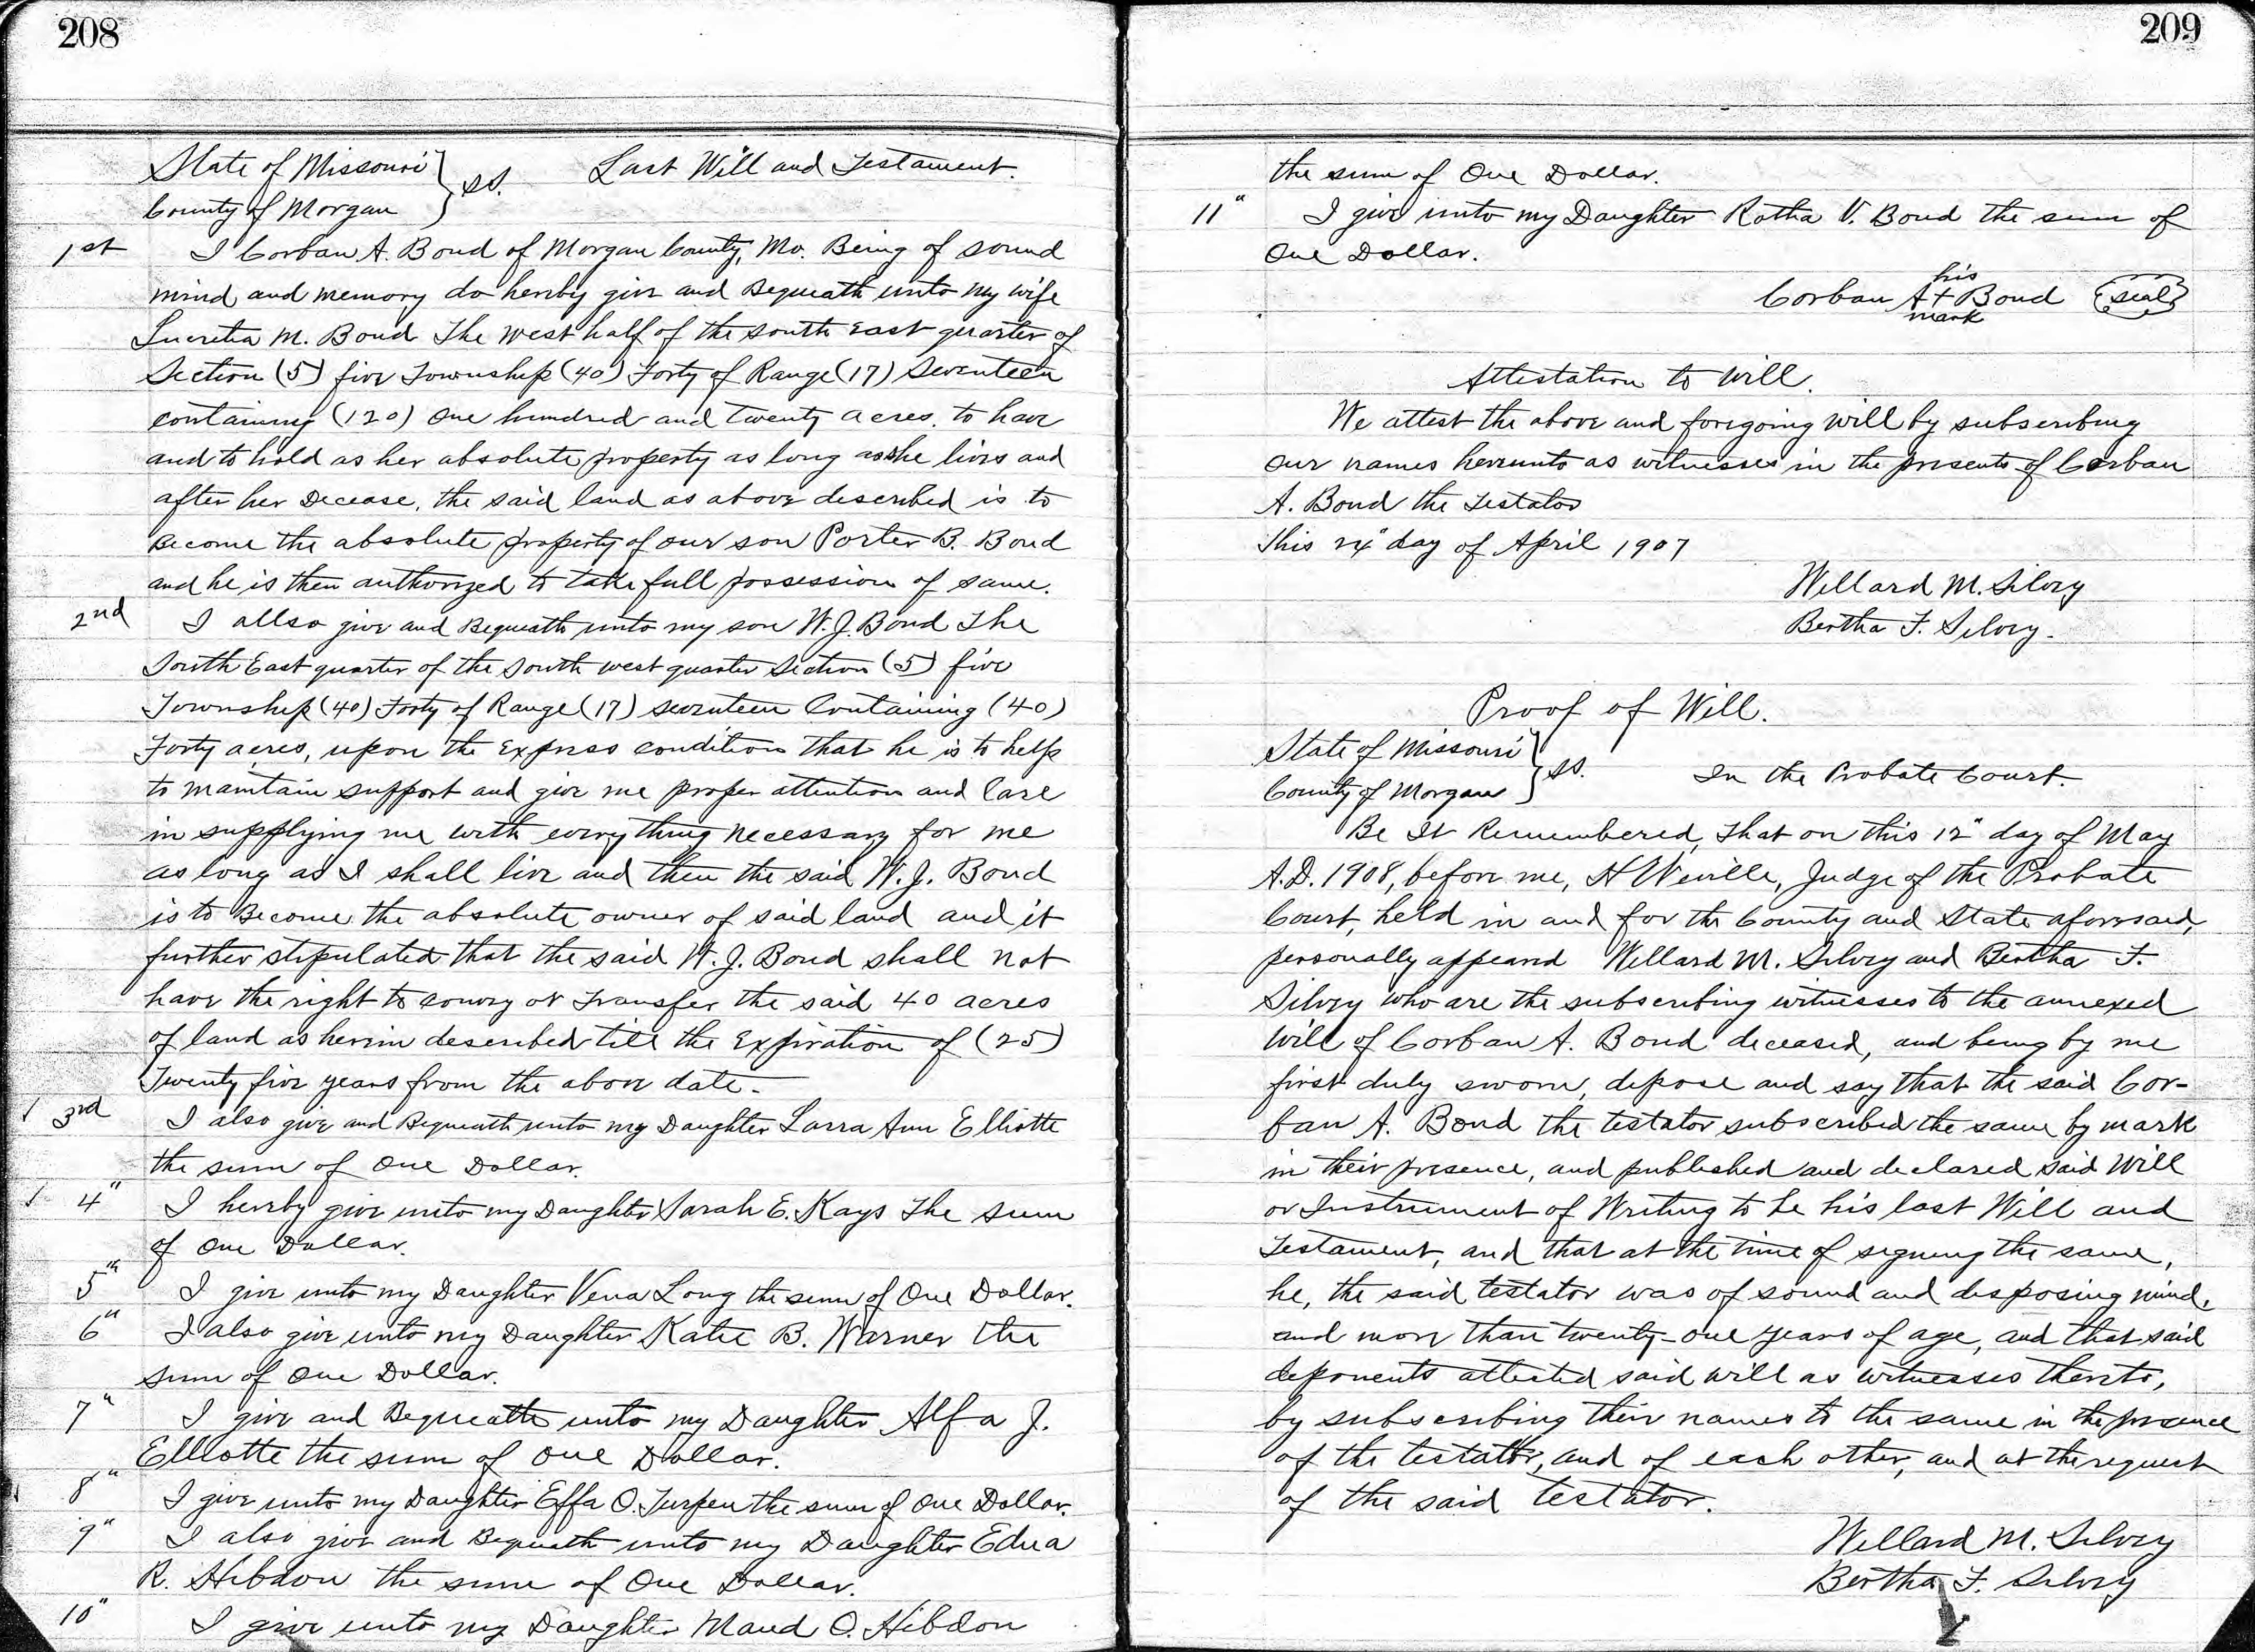 208
State of Missouri } ss. Last Will and Testament.
County of Morgan
1st I Corban A. Bond of Morgan County, Mo. Being of sound
mind and memory do hereby give and Bequeath unto my wife
Lucretia M. Bond The west half of the south east quarter of
Section (5) five Township (40) Forty of Range (17) Seventeen
containing (120) One hundred and twenty acres. to have
and to hold as her absolute property as long as she lives and
after her Decease, the said land as above described is to
Become the absolute property of our son Porter B. Bond
and he is then authorized to take full possession of same.
2nd I allso give and Bequeath unto my son W. J. Bond The
South East quarter of the South west quarter Section (5) five
Township (40) Forty of Range (17) seventeen Containing (40)
Forty acres, upon the Express condition that he is to help
to maintain support and give me proper attention and Care
in supplying me with everything necessary for me
as long as I shall live and then the said W. J. Bond
is to Become the absolute owner of said land and it
further stipulated that the said W. J. Bond shall not
have the right to convey or Transfer the said 40 acres
of land as herein described till the Expiration of (25)
Twenty five years from the above date.
3rd I also give and Bequeath unto my Daughter Larra Ann Elliotte
the sum of One Dollar.
4" I hereby give unto my Daughter Sarah E. Kays The sum
of One Dollar.
5th I give unto my Daughter Vena Long the sum of One Dollar.
6" I also give unto my Daughter Katie B. Warner the
sum of One Dollar.
7" I give and Bequeath unto my Daughter Alfa J.
Elliotte the sum of One Dollar.
8" I give unto my Daughter Effa O. Turpen the sum of One Dollar.
9" I also give and Bequeath unto my Daughter Edna
R. Hibdon the sum of One Dollar.
10" I give unto my Daughter Maud O. Hibdon
209
the sum of One Dollar.
11" I give unto my Daughter Rotha V. Bond the sum of
One Dollar.
his
Corban A + Bond (seal)
mark
Attestation to Will.
We attest the above and foregoing will by subscribing
our names hereunto as witnesses in the presents of Corban
A. Bond the Testator
This 24" day of April 1907
Willard M. Silvey
Bertha F. Silvey.
Proof of Will.
State of Missouri } ss. In the Probate Court.
County of Morgan
Be It Remembered, that on this 12" day of May
A.D. 1908, before me, H Neville, Judge of the Probate
Court, held in and for the County and State aforesaid,
personally appeared Willard M. Silvey and Bertha F.
Silvey who are the subscribing witnesses to the annexed
Will of Corban A. Bond deceased, and being by me
first duly sworn, depose and say that the said Cor-
ban A. Bond the testator subscribed the same by mark
in their presence, and published and declared said Will
or Instrument of Writing to be his last Will and
Testament, and that at the time of signing the same,
he, the said testator was of sound and disposing mind,
and more than twenty-one years of age, and that said
deponents attested said will as witnesses thereto,
by subscribing their names to the same in the presence
of the testator, and of each other, and at the request
of the said testator.
Willard M. Silvey
Bertha F. Silvey